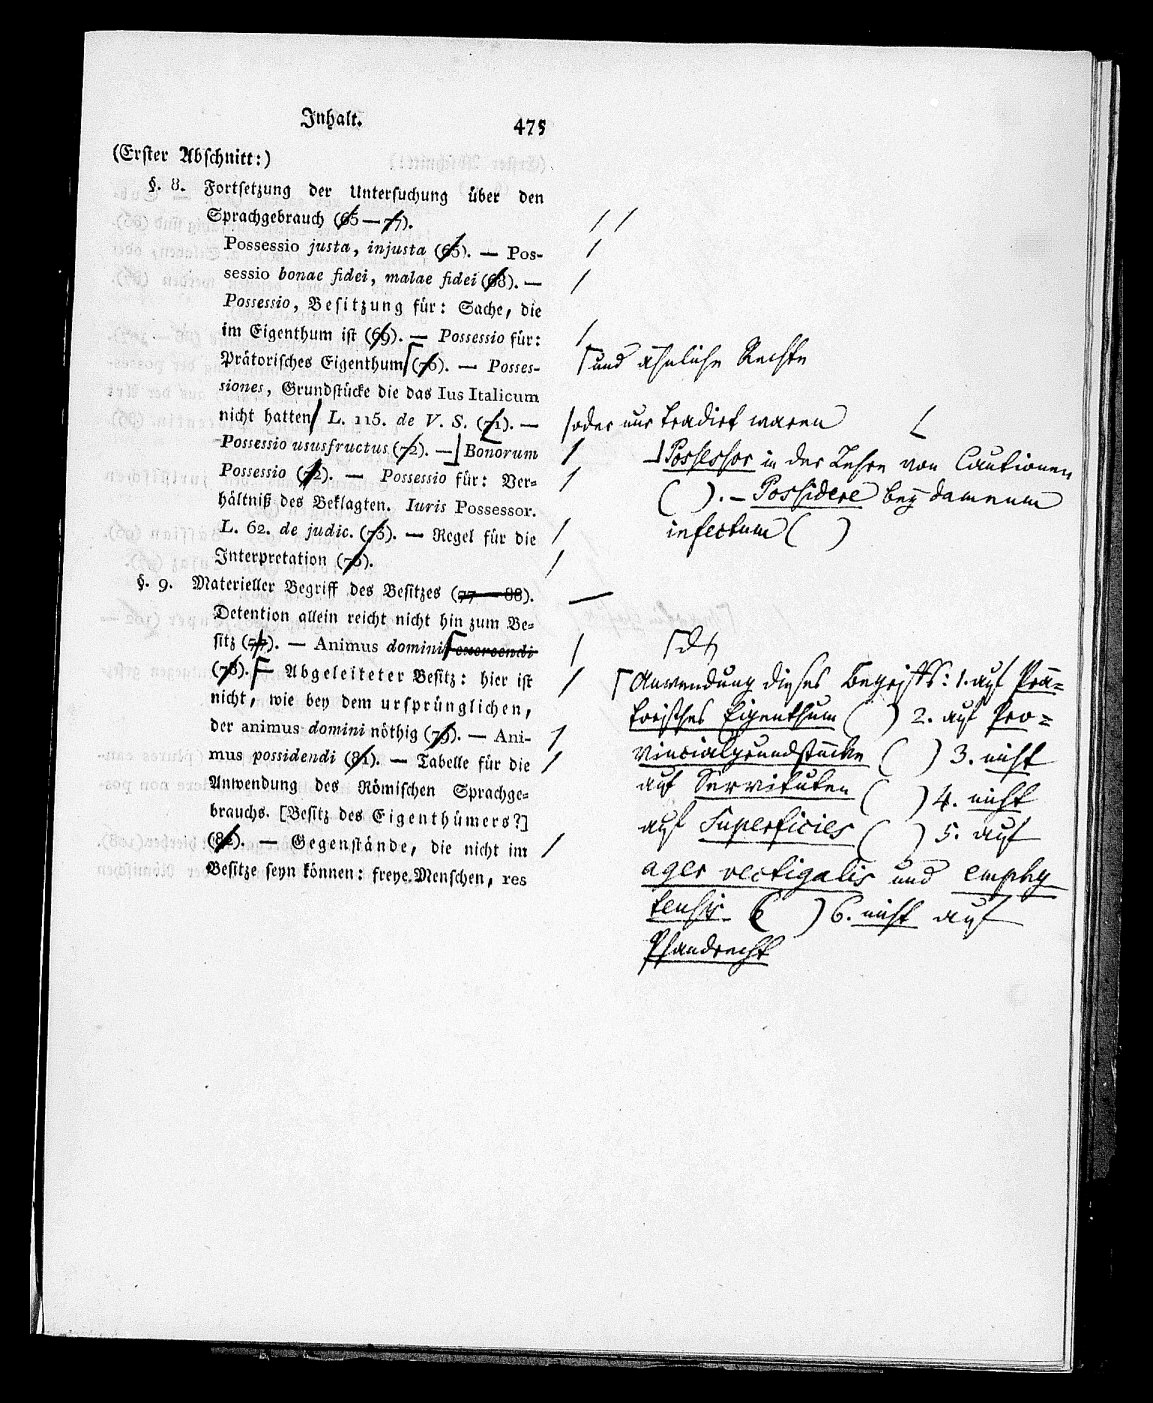 Inhalt. 475
(Erster Abschnitt:)
§. 8. Fortsetzung der Untersuchung über den
Sprachgebrauch (65—77).
Possessio justa, injusta (65). — Pos-
sessio bonae fidei, malae fidei (68). —
Possessio, Besitzung für: Sache, die
im Eigenthum ist (69). — Possessio für:
Prätorisches Eigenthum (76). — Posses-
siones, Grundstücke die das Ius Italicum
nicht hatten L. 115. de V. S. (71). —
Possessio ususfructus (72). — Bonorum
Possessio (72). — Possessio für: Ver-
hältniß des Beklagten. Iuris Possessor.
L. 62. de judic. (75). — Regel für die
Interpretation (76).
§. 9. Materieller Begriff des Besitzes (77—88).
Detention allein reicht nicht hin zum Be-
sitz (77). — Animus domini exercendi
(78). — Abgeleiteter Besitz: hier ist
nicht, wie bey dem ursprünglichen,
der animus domini nöthig (79). — Ani-
mus possidendi (81). — Tabelle für die
Anwendung des Römischen Sprachge-
brauchs. [Besitz des Eigenthümers?]
(82). — Gegenstände, die nicht im
Besitze seyn können: freye Menschen, res
und ähnliche Rechte
oder nur tradirt waren
Possessor in der Lehre von Cautionen
( ). — Possidere bey damnum
infectum ( )
Anwendung dieses Begriffs: 1. auf Prä-
torisches Eigenthum ( ) 2. auf Pro-
vincialgrundstücke ( ) 3. nicht
auf Servituten ( ) 4. nicht
auf Superficies ( ) 5. auf
ager vectigalis und emphy
teusis ( ) 6. nicht auf
Pfandrecht